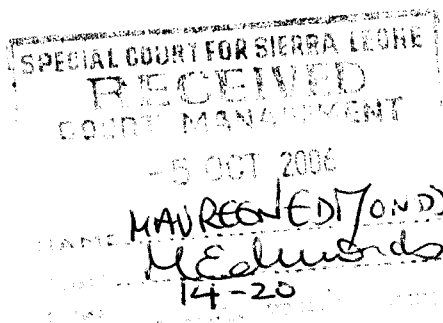 SPECIAL COURT FOR SIERRA LEONE
RECEIVED
COURT MANAGEMENT
-5 OCT 2006
NAME MAUREEN EDMONDS
MEdmonds
14-20